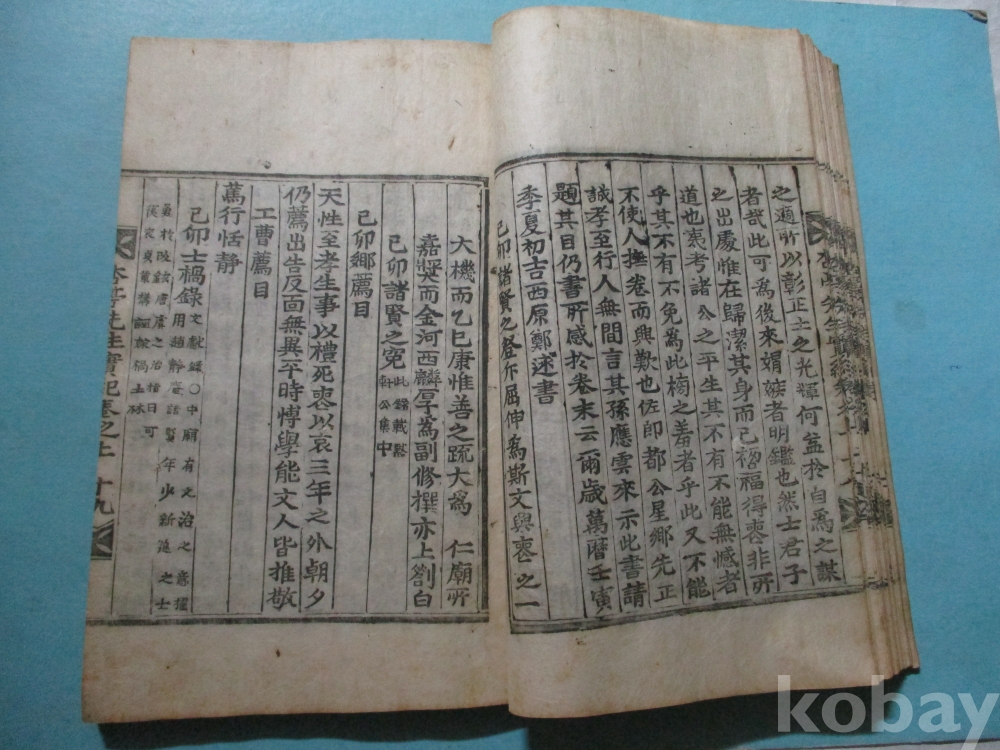 之適所以彰正士之光輝何益於自爲之謀
者哉此可爲後來娟嫉者明鑑也然士君子
之出處惟在歸潔其身而已禍福得喪非所
道也夷考諸公之平生其不有不能無憾者
乎其不有不免爲此樹之羞者乎此又不能
不使人撫卷而興歎也佐郎都公星鄕先正
誠孝至行人無間言其孫應雲來示此書請
題其目仍書所感於卷末云爾歲萬曆壬寅
季夏初吉西原鄭逑書
己卯諸賢之登介屈伸爲斯文興喪之一
大機而乙巳康惟善之疏大爲 仁廟所
嘉奬而金河西麟厚爲副修撰亦上劄白
己卯諸賢之寃 此疏載
軒公集中
己卯鄕薦目
天性至孝生事以禮死喪以哀三年之外朝夕
仍薦出告反面無異平時博學能文人皆推敬
工曹薦目
薦行恬静
己卯士禍錄 文獻錄○中廟有之治之意擢
用趙靜庵諸賢年少新進之士
唐虞之治指日可
士林
先生實紀卷之上 十九
kobay